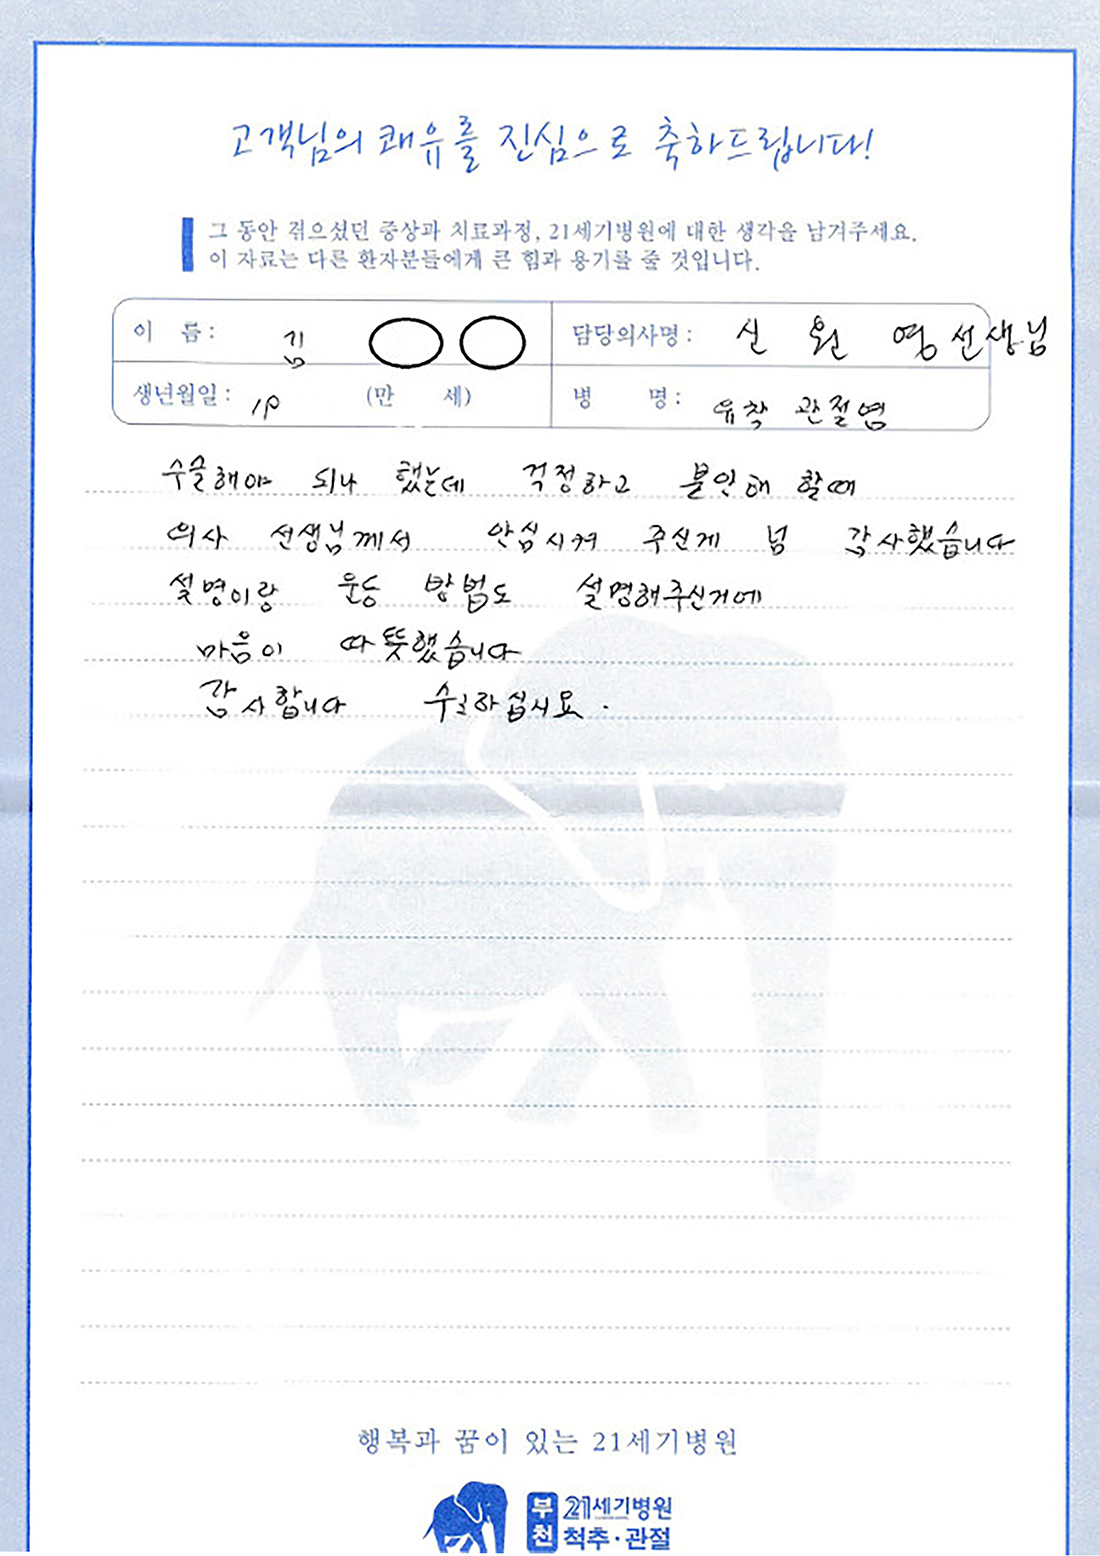 고객님의 쾌유를 진심으로 축하드립니다!
그 동안 겪으셨던 증상과 치료과정, 21세기병원에 대한 생각을 남겨주세요.
이 자료는 다른 환자분들에게 큰 힘과 용기를 줄 것입니다.
이 름 : 김
담당의사명 : 신 원 영 선생님
생년월일 : (만 세)
병 명 : 유착 관절염
수술해야 되나 했는데 걱정하고 불안해 할때
의사 선생님께서 안심시켜 주신게 넘 감사했습니다
설명이랑 운동 방법도 설명해주신거에
마음이 따뜻했습니다
감사합니다 수고하십시요.
행복과 꿈이 있는 21세기병원
부천 21세기병원
척추·관절